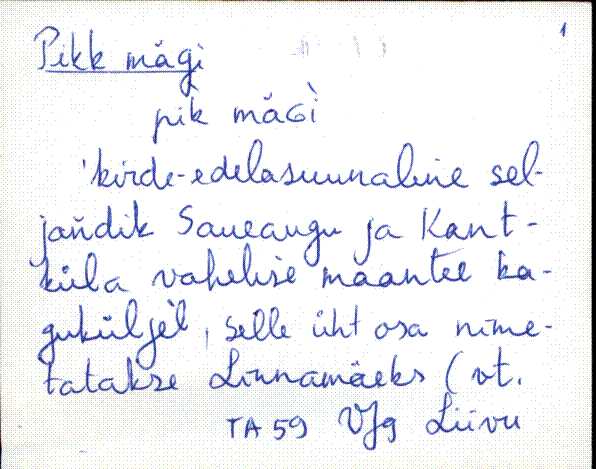 1
Pikk mägi
pik mäGì
'kirde-edelasuunaline sel-
jańdik Saueaugu ja Kant-
küla vahelise maantee ka-
guküljèl, selle üht osa nime-
tatakse Linnamäeks (vt.
TA 59 VJg Liivu